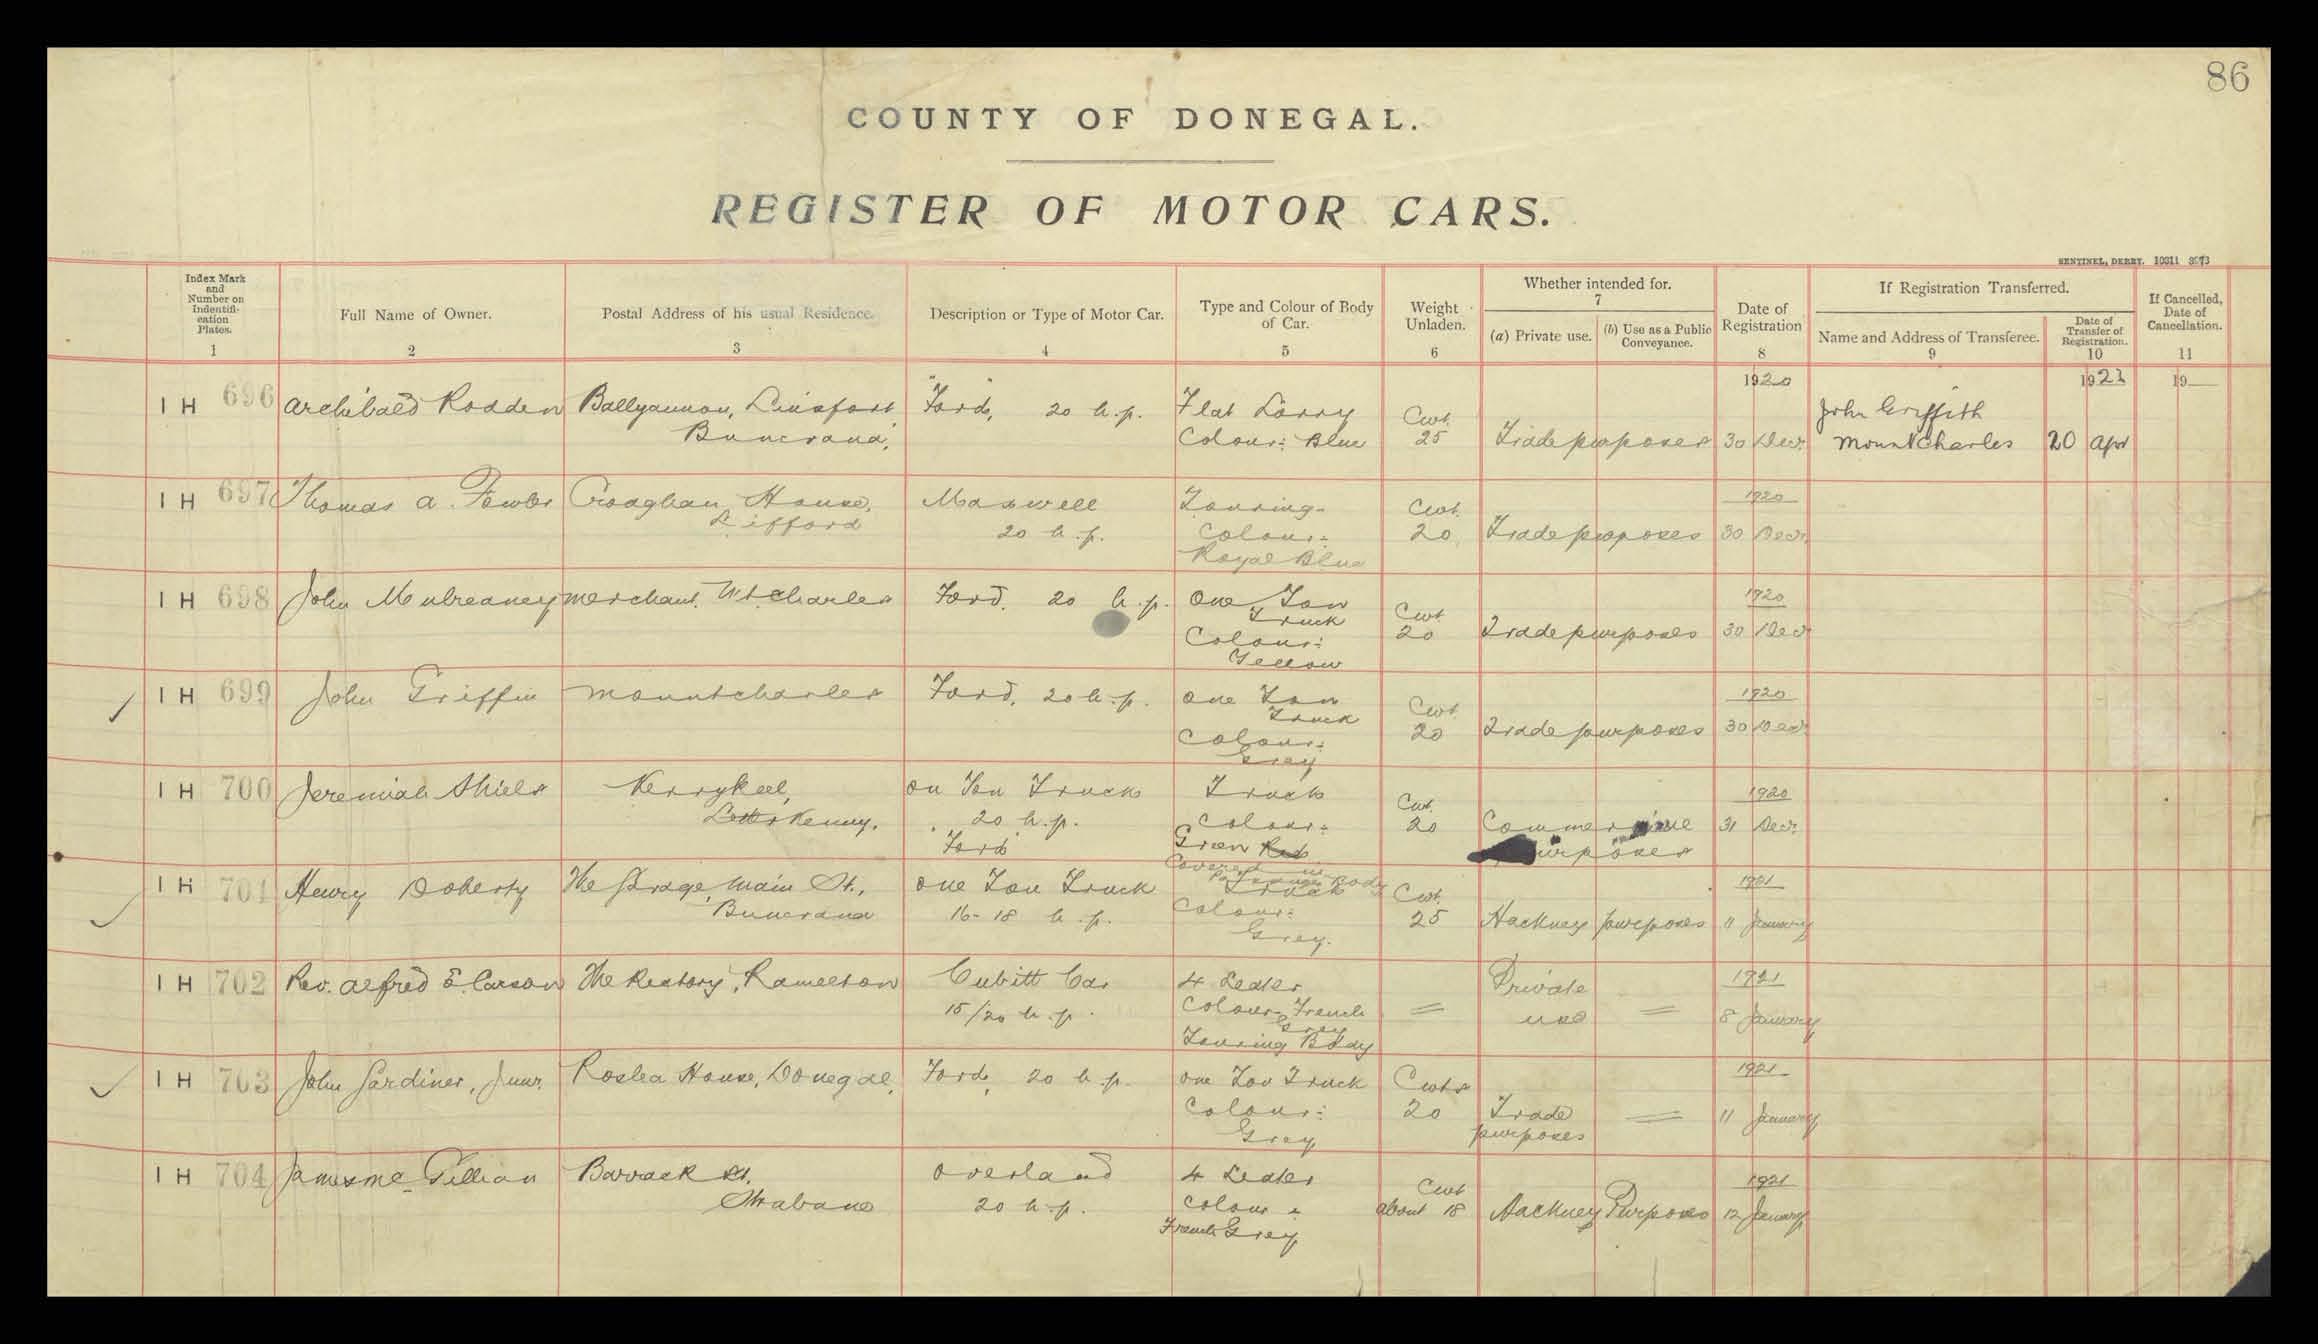 86
COUNTY OF DONEGAL.
REGISTER OF MOTOR CARS.
SENTINEL, DERRY. 10311 3973
Index Mark and Number on Indentifi-cation Plates. 1
Full Name of Owner. 2
Postal Address of his usual Residence. 3
Description or Type of Motor Car. 4
Type and Colour of Body of Car. 5
Weight Unladen. 6
Whether intended for. 7
(a) Private use.
(b) Use as a Public Conveyance.
Date of Registration 8
If Registration Transferred.
Name and Address of Transferee. 9
Date of Transfer of Registration. 10
If Cancelled, Date of Cancellation. 11
1920 1921 19
IH 696 Archibald Rodden Ballyannon, Linsfort, "Ford", 20 h.p. Flat Lorry Cwt. John Griffith
Buncrana, Colour: Blue 25 Trade purposes 30 Decr. Mountcharles 20 Apr
IH 697 Thomas A. Fowler Croaghan House, Maxwell Touring- Cwt. 1920
Lifford 20 h.p. Colour: 20 Trade purposes 30 Decr.
Royal Blue
IH 698 John Mulreaney Merchant. Mt.charles Ford, 20 h.p. One Ton 1920
Truck Cwt.
Colour: 20 Trade purposes 30 Decr
Yellow
IH 699 John Griffin Mountcharles Ford, 20 h.p. One Ton 1920
Truck Cwt.
Colour: 20 Trade purposes 30 Decr.
Grey
IH 700 Jeremiah Shiels Kerrykeel, On Ton Truck Truck Cwt. 1920
Letterkenny. 20 h.p. Colour: 20 31 Decr.
Ford Green Red purposes
Covered in
Passenger Body
IH 701 Henry Doherty Main St., One Ton Truck Truck Cwt. 1921
Buncrana 16-18 h.p. Colour: 25 Hackney purposes 11 January
Grey.
IH 702 Rev. Alfred E. Carson The Rectory, Ramelton Cubitt Car 4 Seater Private 1921
15/20 h.p. Colour- French = use = 8 January
Grey
Touring Body
IH 703 John Gardiner, Junr. Roslea House, Donegal, Ford, 20 h.p. One Ton Truck Cwts 1921
Colour: 20 Trade = 11 January
Grey purposes
IH 704 James Mc Gillian Barrack St. Overland 4 Seater Cwt 1921
Strabane 20 h.p. Colour: about 18 Hackney Purposes 12 January
French Grey